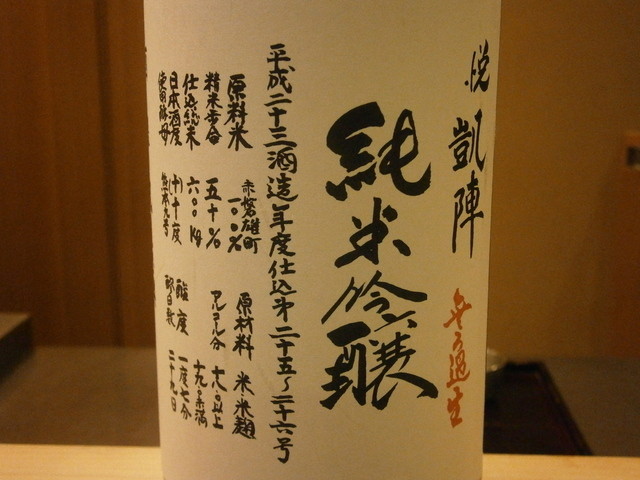 悦凱陣
無ろ過生
純米吟醸
平成二十三酒造年度仕込第二十五〜二十六号
原料米 赤磐雄町 一〇〇%
精米歩合 五十%
仕込総米 六〇〇kg
日本酒度 十十度
使用酵母 熊本九号
原材料 米・米麹
アルコール分 十八度以上
十九度未満
酸度 一度七分
醪日数 二十九日